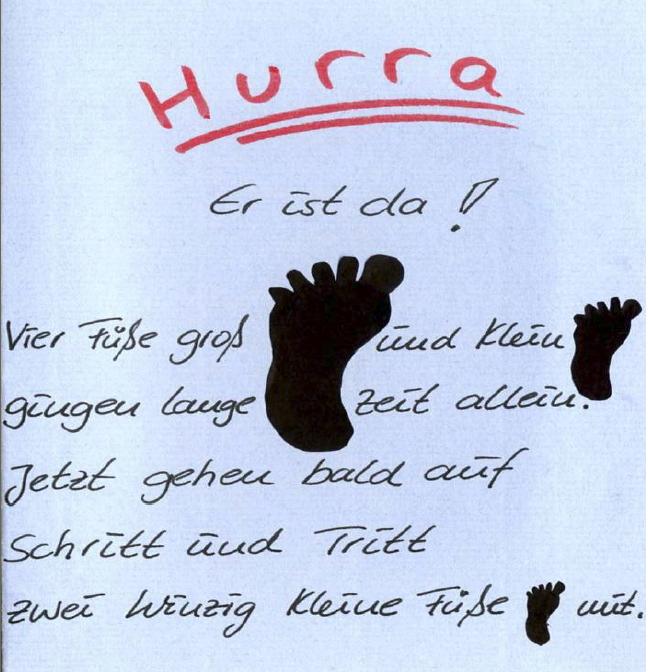 Hurra
Er ist da!
Vier Füße groß und klein
gingen lange Zeit allein.
Jetzt gehen bald auf
Schritt und Tritt
zwei winzig kleine Füße mit.